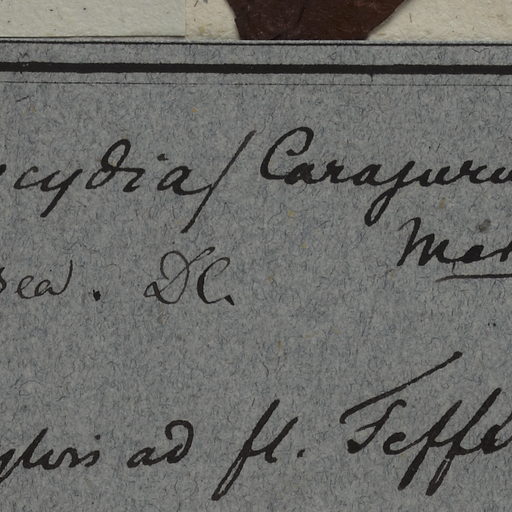 ecydia/ Carajuru
Mar
sea. DC.
ylvis ad fl. Teffe